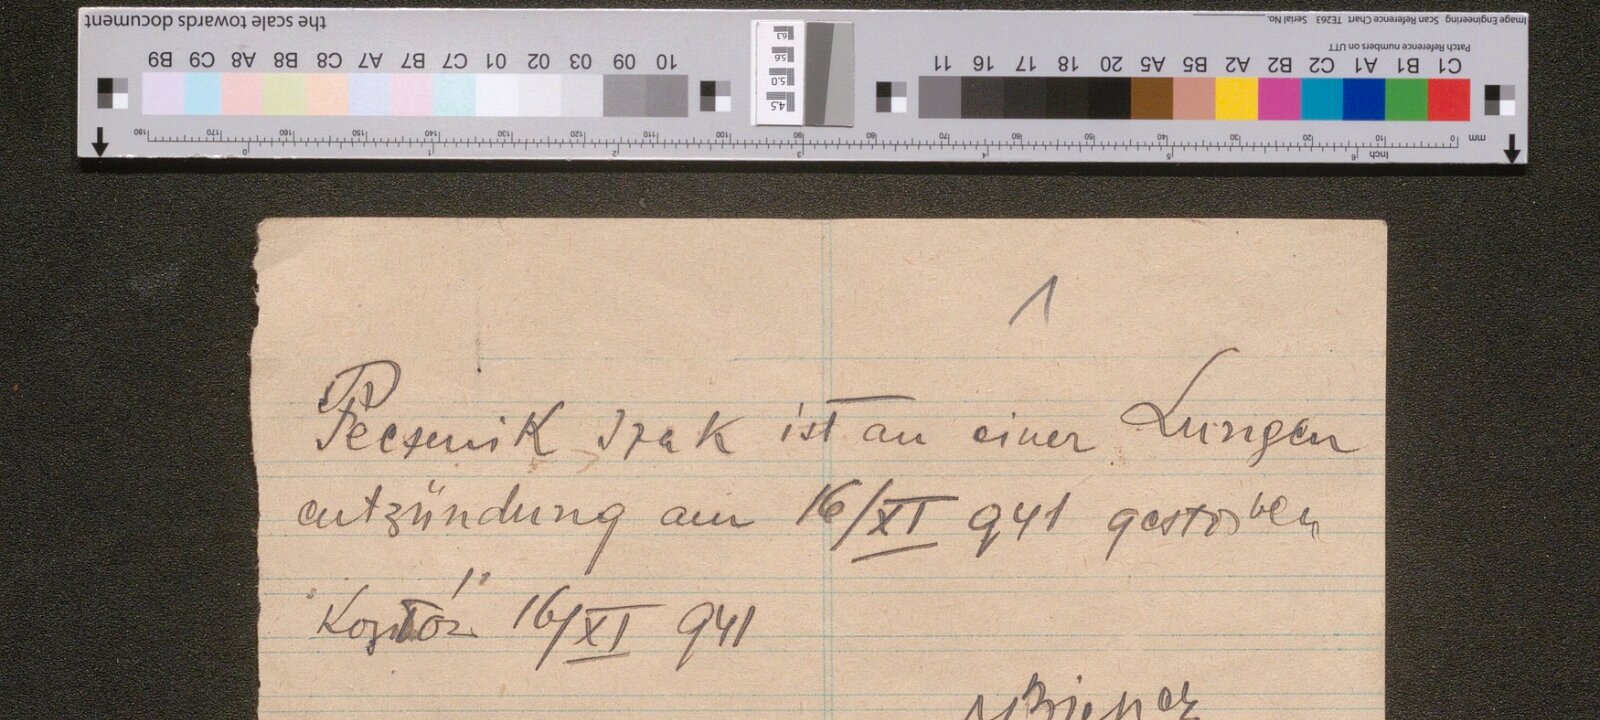 Image Engineering Scan Reference Chart TE263 Serial No.
the scale towards document
Patch Reference numbers on UTT
C1 B1 A1 C2 B2 A2 B5 A5 20 18 17 16 11
10 09 03 02 01 C7 B7 A7 C8 B8 A8 C9 B9
6.3
5.6
5.0
4.5
mm 0 10 20 30 40 50 60 70 80 90 100 110 120 130 140 150 160 170 180
Inch 6 5 4 3 2 1 0
1
Pecsenik Izak ist an einer Lungen
entzündung am 16/XI 941 gestorben
16/XI 941